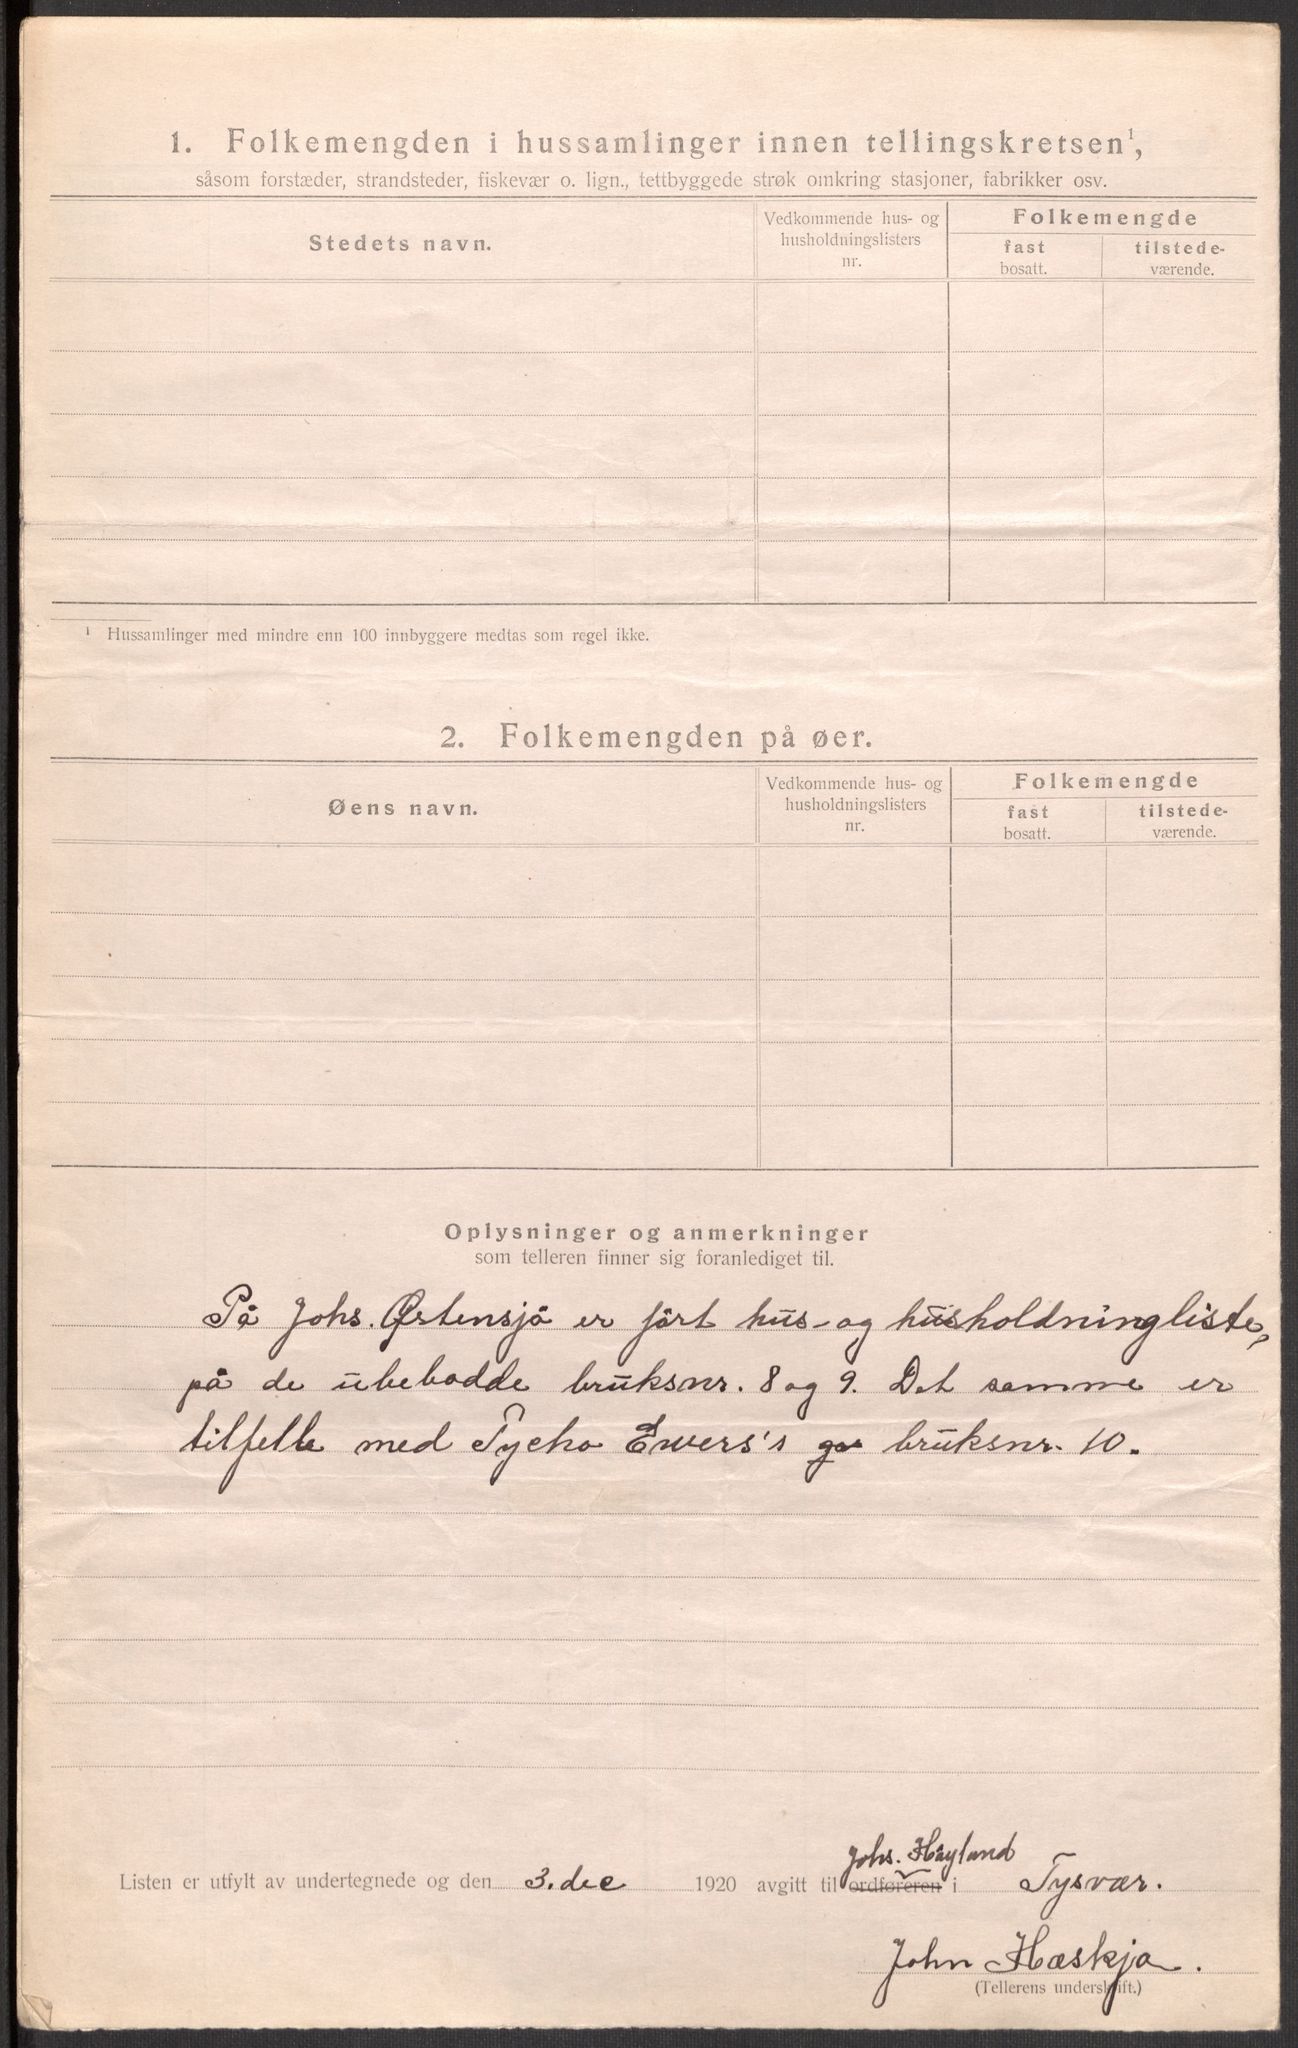 1. Folkemengden i hussamlinger innen tellingskretsen¹,
såsom forstæder, strandsteder, fiskevær o. lign., tettbyggede strøk omkring stasjoner, fabrikker osv.
Stedets navn.
Vedkommende hus- og
husholdningslisters
nr.
Folkemengde
fast
bosatt.
tilstede-
værende.
¹ Hussamlinger med mindre enn 100 innbyggere medtas som regel ikke.
2. Folkemengden på øer.
Øens navn.
Vedkommende hus- og
husholdningslisters
nr.
Folkemengde
fast
bosatt.
tilstede-
værende.
Oplysninger og anmerkninger
som telleren finner sig foranlediget til.
På Johs. Østensjö er fört hus- og husholdningliste,
på de ubebodde bruksnr. 8 og 9. Det samme er
tilfelle med Tycho Ewers's bruksnr. 10.
Johs. Håyland
Listen er utfylt av undertegnede og den 3. dec 1920 avgitt til ordføreren i Tysvær.
John Hæskja.
(Tellerens underskrift.)